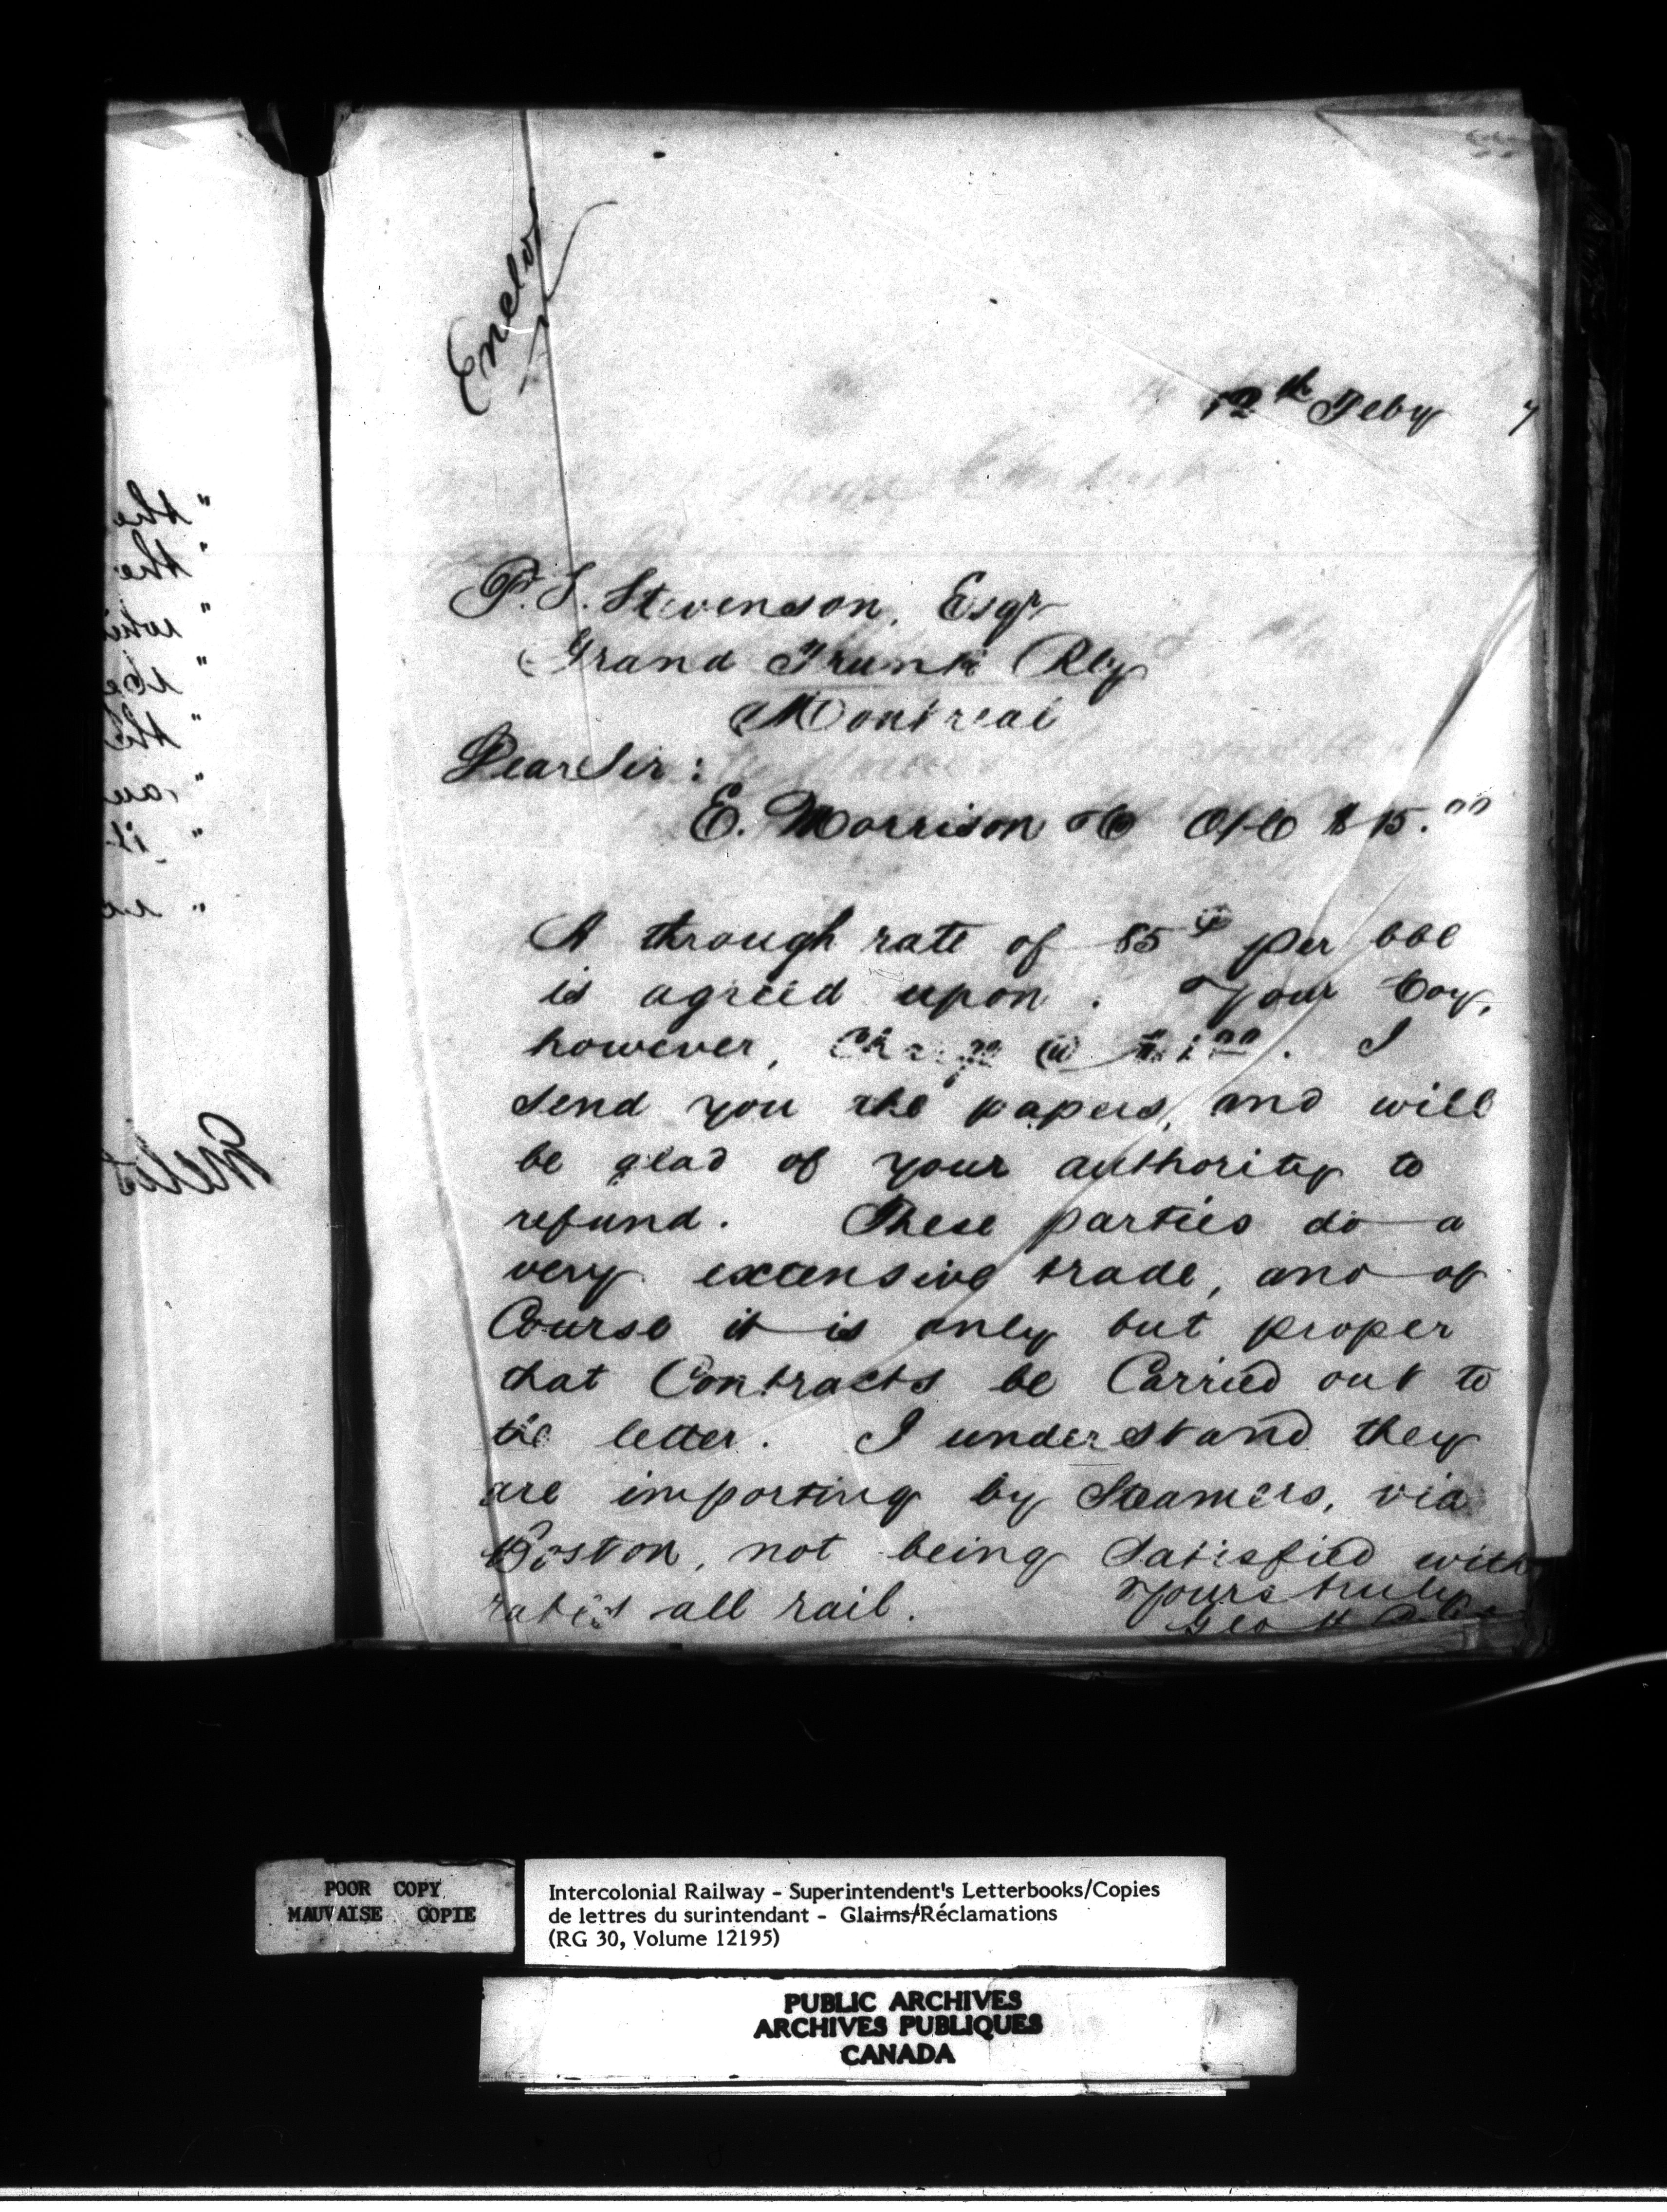 Enclo
12th Feby 7
P. S. Stevenson, Esqr
Grand Trunk Rly
Montreal
Dear Sir:
E. Morrison O/C $15.00
A through rate of 85¢ per bbl
is agreed upon. Your Coy,
however, Charge @ $1.00. I
send you the papers, and will
be glad of your authority to
refund. These parties do a
very extensive trade, and of
Course it is only but proper
that Contracts be Carried out to
the letter. I understand they
are importing by Steamers, via
Boston, not being Satisfied with
rates all rail.
Yours truly
Geo
"the
"the
"
"
"the
"
" it
"
Enclo
POOR COPY
MAUVAISE COPIE
Intercolonial Railway - Superintendent's Letterbooks/Copies
de lettres du surintendant - Glaims/Réclamations
(RG 30, Volume 12195)
PUBLIC ARCHIVES
ARCHIVES PUBLIQUES
CANADA